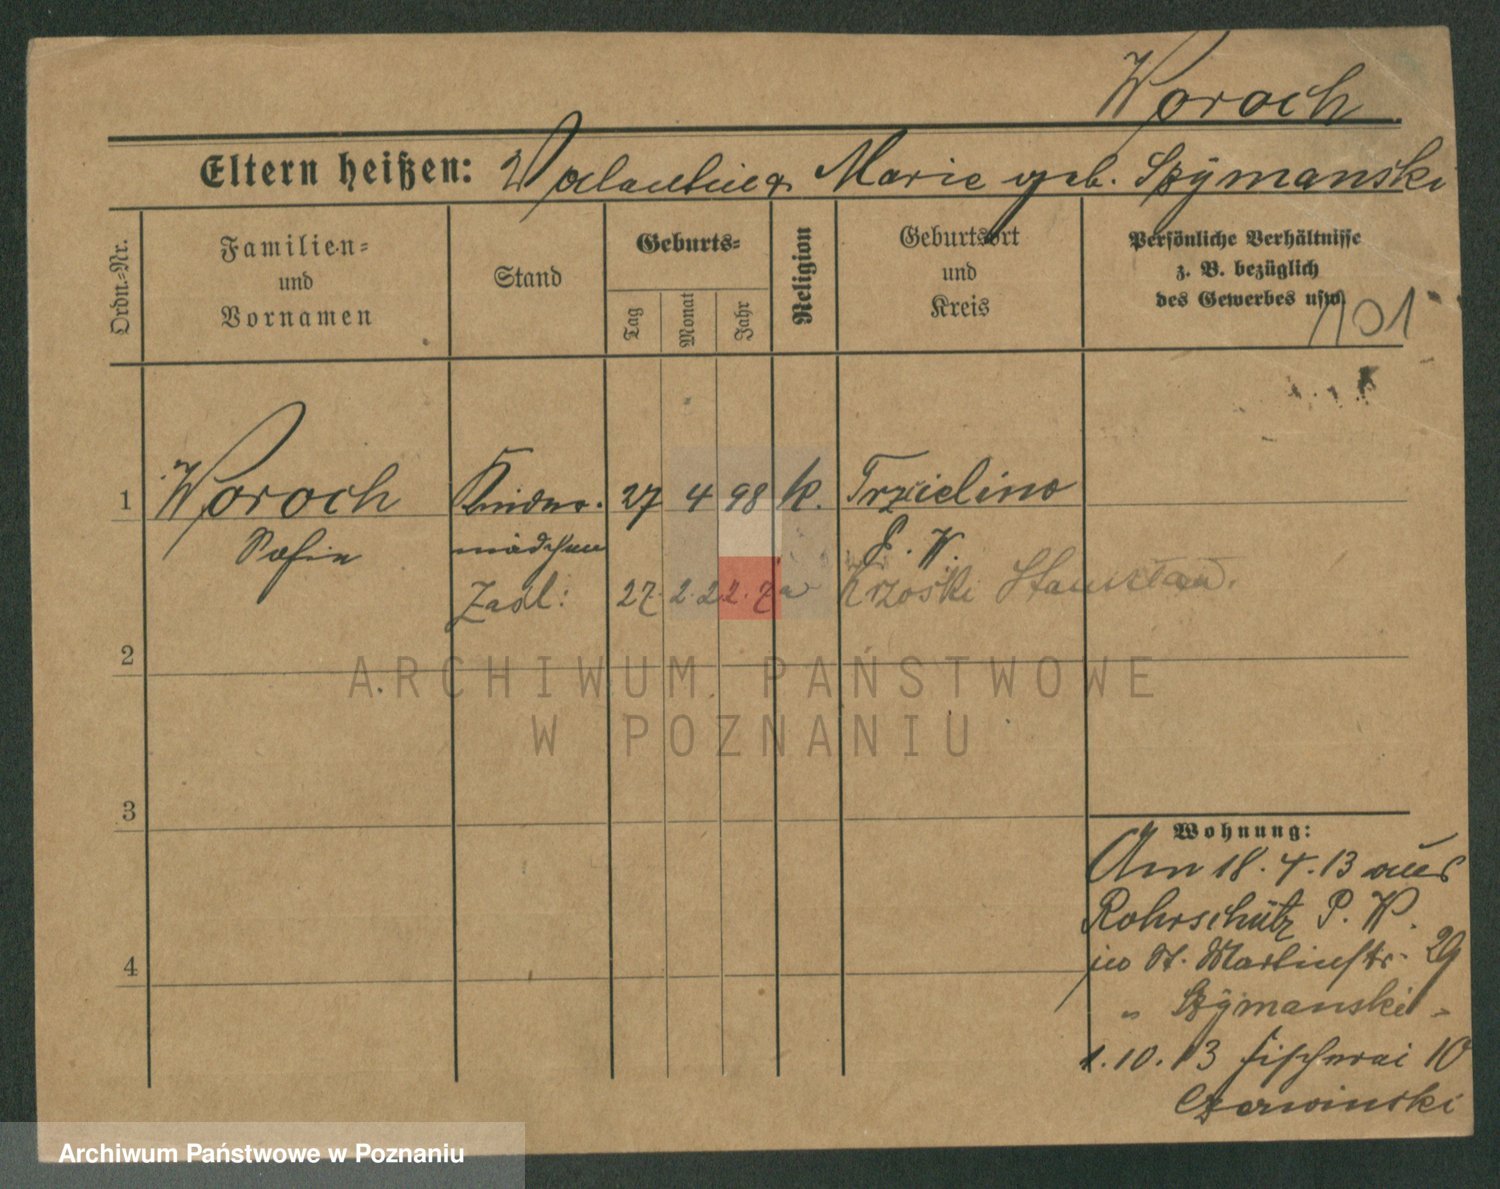 Woroch
Eltern heißen: Valentin u. Marie geb. Szÿmanski
Ordn.-Nr.
Familien- und Vornamen
Stand
Geburts-
Tag
Monat
Jahr
Religion
Geburtsort und Kreis
Persönliche Verhältnisse
z. B. bezüglich
des Gewerbes usw.
101
1 Woroch Kinder- 27 4 98 k. Trzielino
Sofie mädchen P. W.
Zaśl: 27. 2. 22. za Krzoski Stanisław.
2
3
4
Wohnung:
Am 18.4.13 aus
Rohrschütz P. W.
in St. Martinstr. 29
" Szÿmanski "
1.10.13 Fischerei 10
Czerwinski
ARCHIWUM PAŃSTWOWE
W POZNANIU
Archiwum Państwowe w Poznaniu